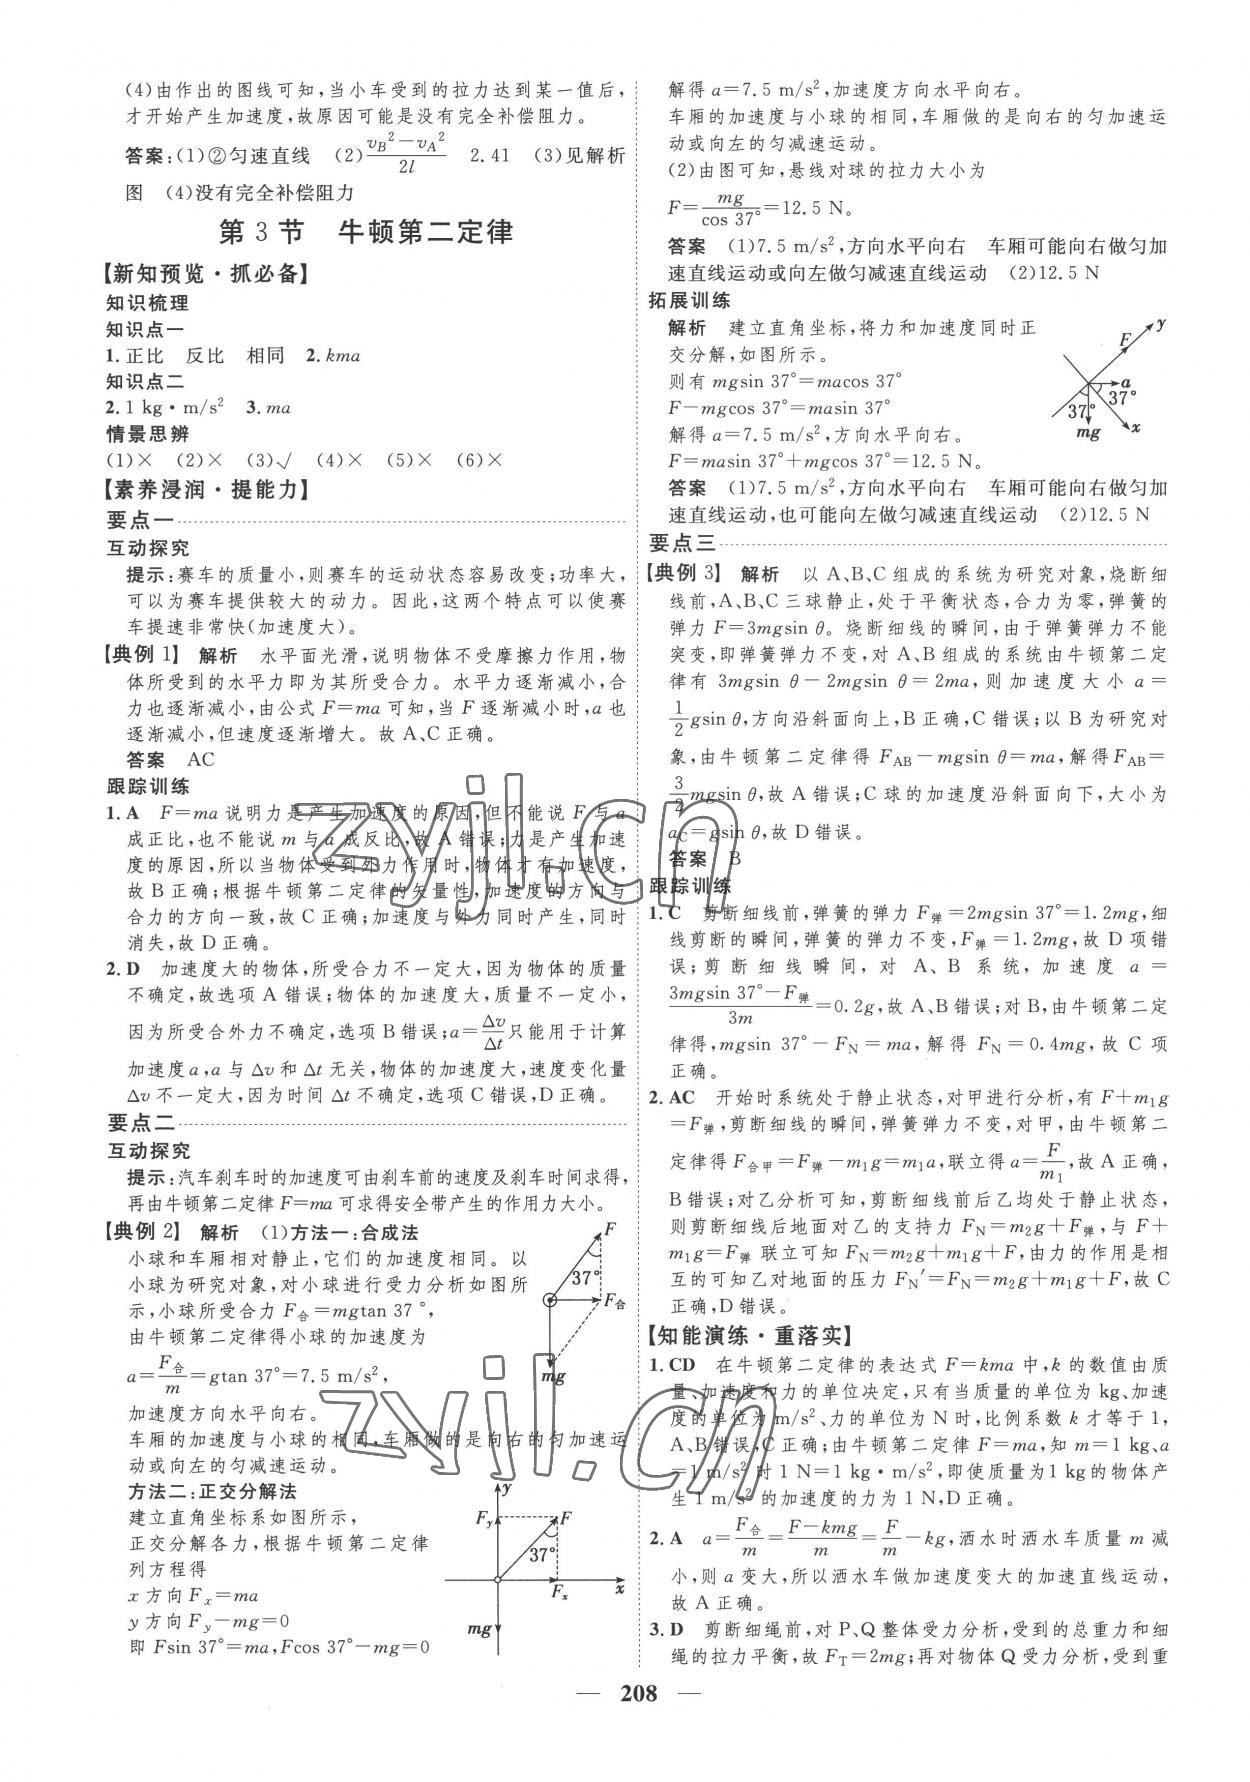 (4)由作出的图线可知,当小车受到的拉力达到某一值后,
才开始产生加速度,故原因可能是没有完全补偿阻力。
答案:(1)②匀速直线 (2)(v_B²－v_A²)/2l 2.41 (3)见解析
图 (4)没有完全补偿阻力
第3节 牛顿第二定律
【新知预览·抓必备】
知识梳理
知识点一
1.正比 反比 相同 2.kma
知识点二
2.1 kg·m/s² 3.ma
情景思辨
(1)× (2)× (3)√ (4)× (5)× (6)×
【素养浸润·提能力】
要点一
互动探究
提示:赛车的质量小,则赛车的运动状态容易改变;功率大,
可以为赛车提供较大的动力。因此,这两个特点可以使赛
车提速非常快(加速度大)。
【典例1】 解析 水平面光滑,说明物体不受摩擦力作用,物
体所受到的水平力即为其所受合力。水平力逐渐减小,合
力也逐渐减小,由公式 F＝ma 可知,当 F 逐渐减小时,a 也
逐渐减小,但速度逐渐增大。故 A、C 正确。
答案 AC
跟踪训练
1.A F＝ma 说明力是产生加速度的原因,但不能说 F 与 a
成正比,也不能说 m 与 a 成反比,故 A 错误;力是产生加速
度的原因,所以当物体受到外力作用时,物体才有加速度,
故 B 正确;根据牛顿第二定律的矢量性,加速度的方向与
合力的方向一致,故 C 正确;加速度与外力同时产生,同时
消失,故 D 正确。
2.D 加速度大的物体,所受合力不一定大,因为物体的质量
不确定,故选项 A 错误;物体的加速度大,质量不一定小,
因为所受合外力不确定,选项 B 错误;a＝Δv/Δt 只能用于计算
加速度 a,a 与 Δv 和 Δt 无关,物体的加速度大,速度变化量
Δv 不一定大,因为时间 Δt 不确定,选项 C 错误,D 正确。
要点二
互动探究
提示:汽车刹车时的加速度可由刹车前的速度及刹车时间求得,
再由牛顿第二定律 F＝ma 可求得安全带产生的作用力大小。
【典例2】 解析 (1)方法一:合成法
小球和车厢相对静止,它们的加速度相同。以
小球为研究对象,对小球进行受力分析如图所
示,小球所受合力 F合＝mgtan 37°,
由牛顿第二定律得小球的加速度为
a＝F合/m＝gtan 37°＝7.5 m/s²,
加速度方向水平向右。
车厢的加速度与小球的相同,车厢做的是向右的匀加速运
动或向左的匀减速运动。
F
37°
F合
mg
方法二:正交分解法
建立直角坐标系如图所示,
正交分解各力,根据牛顿第二定律
列方程得
x 方向 Fx＝ma
y 方向 Fy－mg＝0
即 Fsin 37°＝ma,Fcos 37°－mg＝0
y
Fy
F
37°
Fx
x
mg
解得 a＝7.5 m/s²,加速度方向水平向右。
车厢的加速度与小球的相同,车厢做的是向右的匀加速运
动或向左的匀减速运动。
(2)由图可知,悬线对球的拉力大小为
F＝mg/cos 37°＝12.5 N。
答案 (1)7.5 m/s²,方向水平向右 车厢可能向右做匀加
速直线运动或向左做匀减速直线运动 (2)12.5 N
拓展训练
解析 建立直角坐标,将力和加速度同时正
交分解,如图所示。
则有 mgsin 37°＝macos 37°
F－mgcos 37°＝masin 37°
解得 a＝7.5 m/s²,方向水平向右。
F＝masin 37°＋mgcos 37°＝12.5 N。
y
F
a
37°
37°
mg
x
答案 (1)7.5 m/s²,方向水平向右 车厢可能向右做匀加
速直线运动,也可能向左做匀减速直线运动 (2)12.5 N
要点三
【典例3】 解析 以 A、B、C 组成的系统为研究对象,烧断细
线前,A、B、C 三球静止,处于平衡状态,合力为零,弹簧的
弹力 F＝3mgsin θ。烧断细线的瞬间,由于弹簧弹力不能
突变,即弹簧弹力不变,对 A、B 组成的系统由牛顿第二定
律有 3mgsin θ－2mgsin θ＝2ma,则加速度大小 a＝
1/2 gsin θ,方向沿斜面向上,B 正确,C 错误;以 B 为研究对
象,由牛顿第二定律得 F_AB－mgsin θ＝ma,解得 F_AB＝
3/2 mgsin θ,故 A 错误;C 球的加速度沿斜面向下,大小为
a_C＝gsin θ,故 D 错误。
答案 B
跟踪训练
1.C 剪断细线前,弹簧的弹力 F弹＝2mgsin 37°＝1.2mg,细
线剪断的瞬间,弹簧的弹力不变,F弹＝1.2mg,故 D 项错
误;剪断细线瞬间,对 A、B 系统,加速度 a＝
(3mgsin 37°－F弹)/3m＝0.2g,故 A、B 错误;对 B,由牛顿第二定
律得,mgsin 37°－F_N＝ma,解得 F_N＝0.4mg,故 C 项
正确。
2.AC 开始时系统处于静止状态,对甲进行分析,有 F＋m₁g
＝F弹,剪断细线的瞬间,弹簧弹力不变,对甲,由牛顿第二
定律得 F合甲＝F弹－m₁g＝m₁a,联立得 a＝F/m₁,故 A 正确,
B 错误;对乙分析可知,剪断细线前后乙均处于静止状态,
则剪断细线后地面对乙的支持力 F_N＝m₂g＋F弹,与 F＋
m₁g＝F弹 联立可知 F_N＝m₂g＋m₁g＋F,由力的作用是相
互的可知乙对地面的压力 F_N′＝F_N＝m₂g＋m₁g＋F,故 C
正确,D 错误。
【知能演练·重落实】
1.CD 在牛顿第二定律的表达式 F＝kma 中,k 的数值由质
量、加速度和力的单位决定,只有当质量的单位为 kg、加速
度的单位为 m/s²、力的单位为 N 时,比例系数 k 才等于 1,
A、B 错误,C 正确;由牛顿第二定律 F＝ma,知 m＝1 kg、a
＝1 m/s² 时 1 N＝1 kg·m/s²,即使质量为1 kg的物体产
生 1 m/s² 的加速度的力为 1 N,D 正确。
2.A a＝F合/m＝(F－kmg)/m＝F/m－kg,洒水时洒水车质量 m 减
小,则 a 变大,所以洒水车做加速度变大的加速直线运动,
故 A 正确。
3.D 剪断细绳前,对 P、Q 整体受力分析,受到的总重力和细
绳的拉力平衡,故 F_T＝2mg;再对物体 Q 受力分析,受到重
— 208 —
zyjl.cn
zyjl.cn